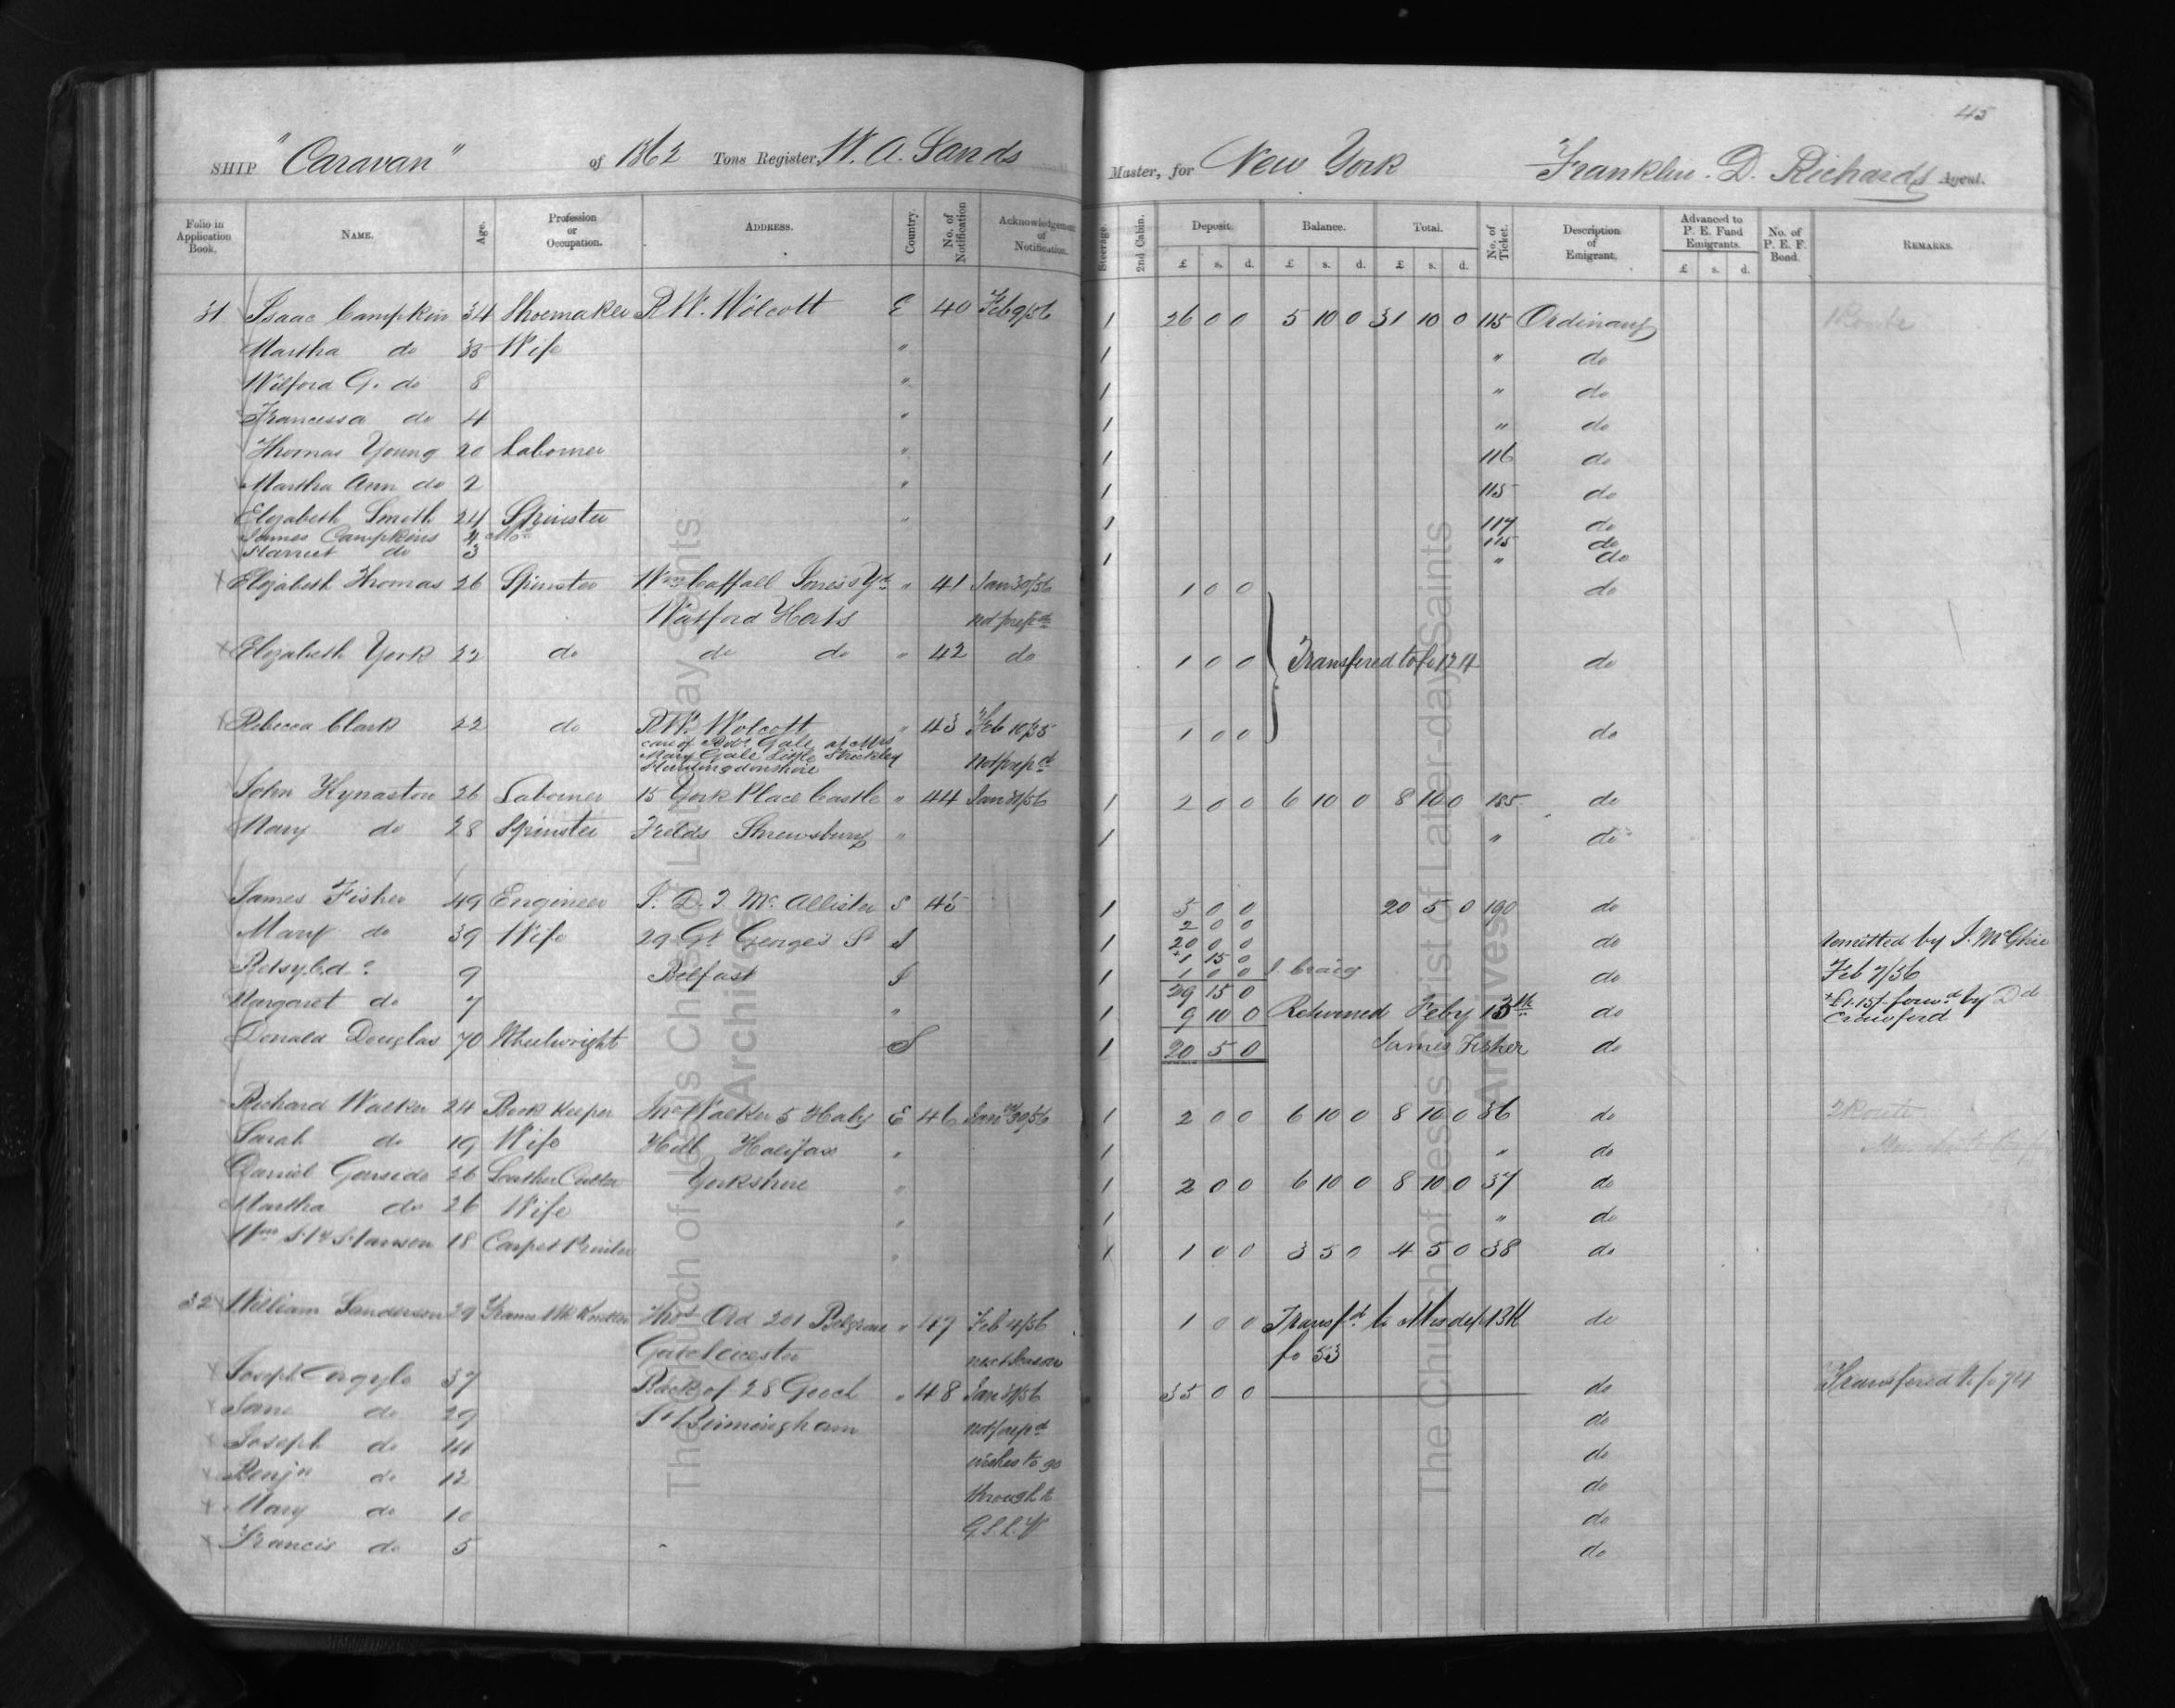 45
SHIP "Caravan" of 1862 Tons Register, W. A. Sands Master, for New York Franklin. D. Richards Agent.
Folio in Application Book. NAME. Age. Profession or Occupation. ADDRESS. Country. No. of Notification Acknowledgement of Notification. Steerage. 2nd Cabin. Deposit. £ s. d. Balance. £ s. d. Total. £ s. d. No. of Ticket. Description of Emigrant. Advanced to P. E. Fund Emigrants. £ s. d. No. of P. E. F. Bond. REMARKS.
31 Isaac Campkin 34 Shoemaker R W. Wolcott E 40 Feb 9/56 1 26 0 0 5 10 0 31 10 0 115 Ordinary
Martha do 33 Wife " 1 " do
Wilford G. do 8 " 1 " do
Francessa do 4 " 1 " do
Thomas Young 20 Laborer " 1 116 do
Martha Ann do 2 " 1 115 do
Elizabeth Smith 24 Spinster " 1 117 do
James Campkins 4 115 do
Harriet do 3 1 " do
Elizabeth Thomas 26 Spinster Wm Caffall Jones's Yd " 41 Jan 30/56 1 0 0 do
Watford Herts not prepd
Elizabeth York 22 do do do " 42 do 1 0 0 Transfered to fo 124 do
Rebecca Clark 22 do R W. Wolcott " 43 Feb 10/55 1 0 0 do
care of Robt Gale at Mrs
Mary Gale Little Struckley
Huntingdonshire Not prepd
John Kynaston 26 Laborer 15 York Place Castle " 44 Jan 31/56 1 2 0 0 6 10 0 8 10 0 185 do
Mary do 28 Spinster Fields Shrewsbury " 1 " do
James Fisher 49 Engineer J. D. T. Mc Allister S 45 1 5 0 0 20 5 0 190 do
2 0 0
Mary do 39 Wife 29 Gt George's St S 1 20 0 0 do Remitted by J. McGhie
+1 15 0
Betsy C. do 9 Belfast I 1 1 0 0 J. Craig do Feb 7/56
29 15 0
Margaret do 7 " 1 9 10 0 Returned Feby 13th do +£1.15/- forwd by Dd
Crawford
Donald Douglas 70 Wheelwright S 1 20 5 0 James Fisher do
Richard Walker 24 Book Keeper Jno Walker 5 Haley E 46 Jan 30/56 1 2 0 0 6 10 0 8 10 0 36 do
Sarah do 19 Wife Hill Halifax " 1 " do
Daniel Garside 26 Leather Cutter Yorkshire " 1 2 0 0 6 10 0 8 10 0 37 do
Martha do 26 Wife " 1 " do
Wm Hanson 18 Carpet Printer " 1 1 0 0 3 5 0 4 5 0 38 do
32 William Sanderson 29 Frame Wk Knitter Thos Ord 201 Belgrave " 47 Feb 4/56 1 0 0 Transfd to Mis dep 1311 do
Gate Leicester next Season fo 53
Joseph Argyle 37 Back of 28 Gooch " 48 Jan 31/56 35 0 0 do Transfered to fo 74
Jane do 29 St Birmingham not prepd do
Joseph do 14 wishes to go do
Benjn do 12 through to do
Mary do 10 G.S.L.V do
Francis do 5 do
The Church of Jesus Christ of Latter-day Saints
Archives
The Church of Jesus Christ of Latter-day Saints
Archives